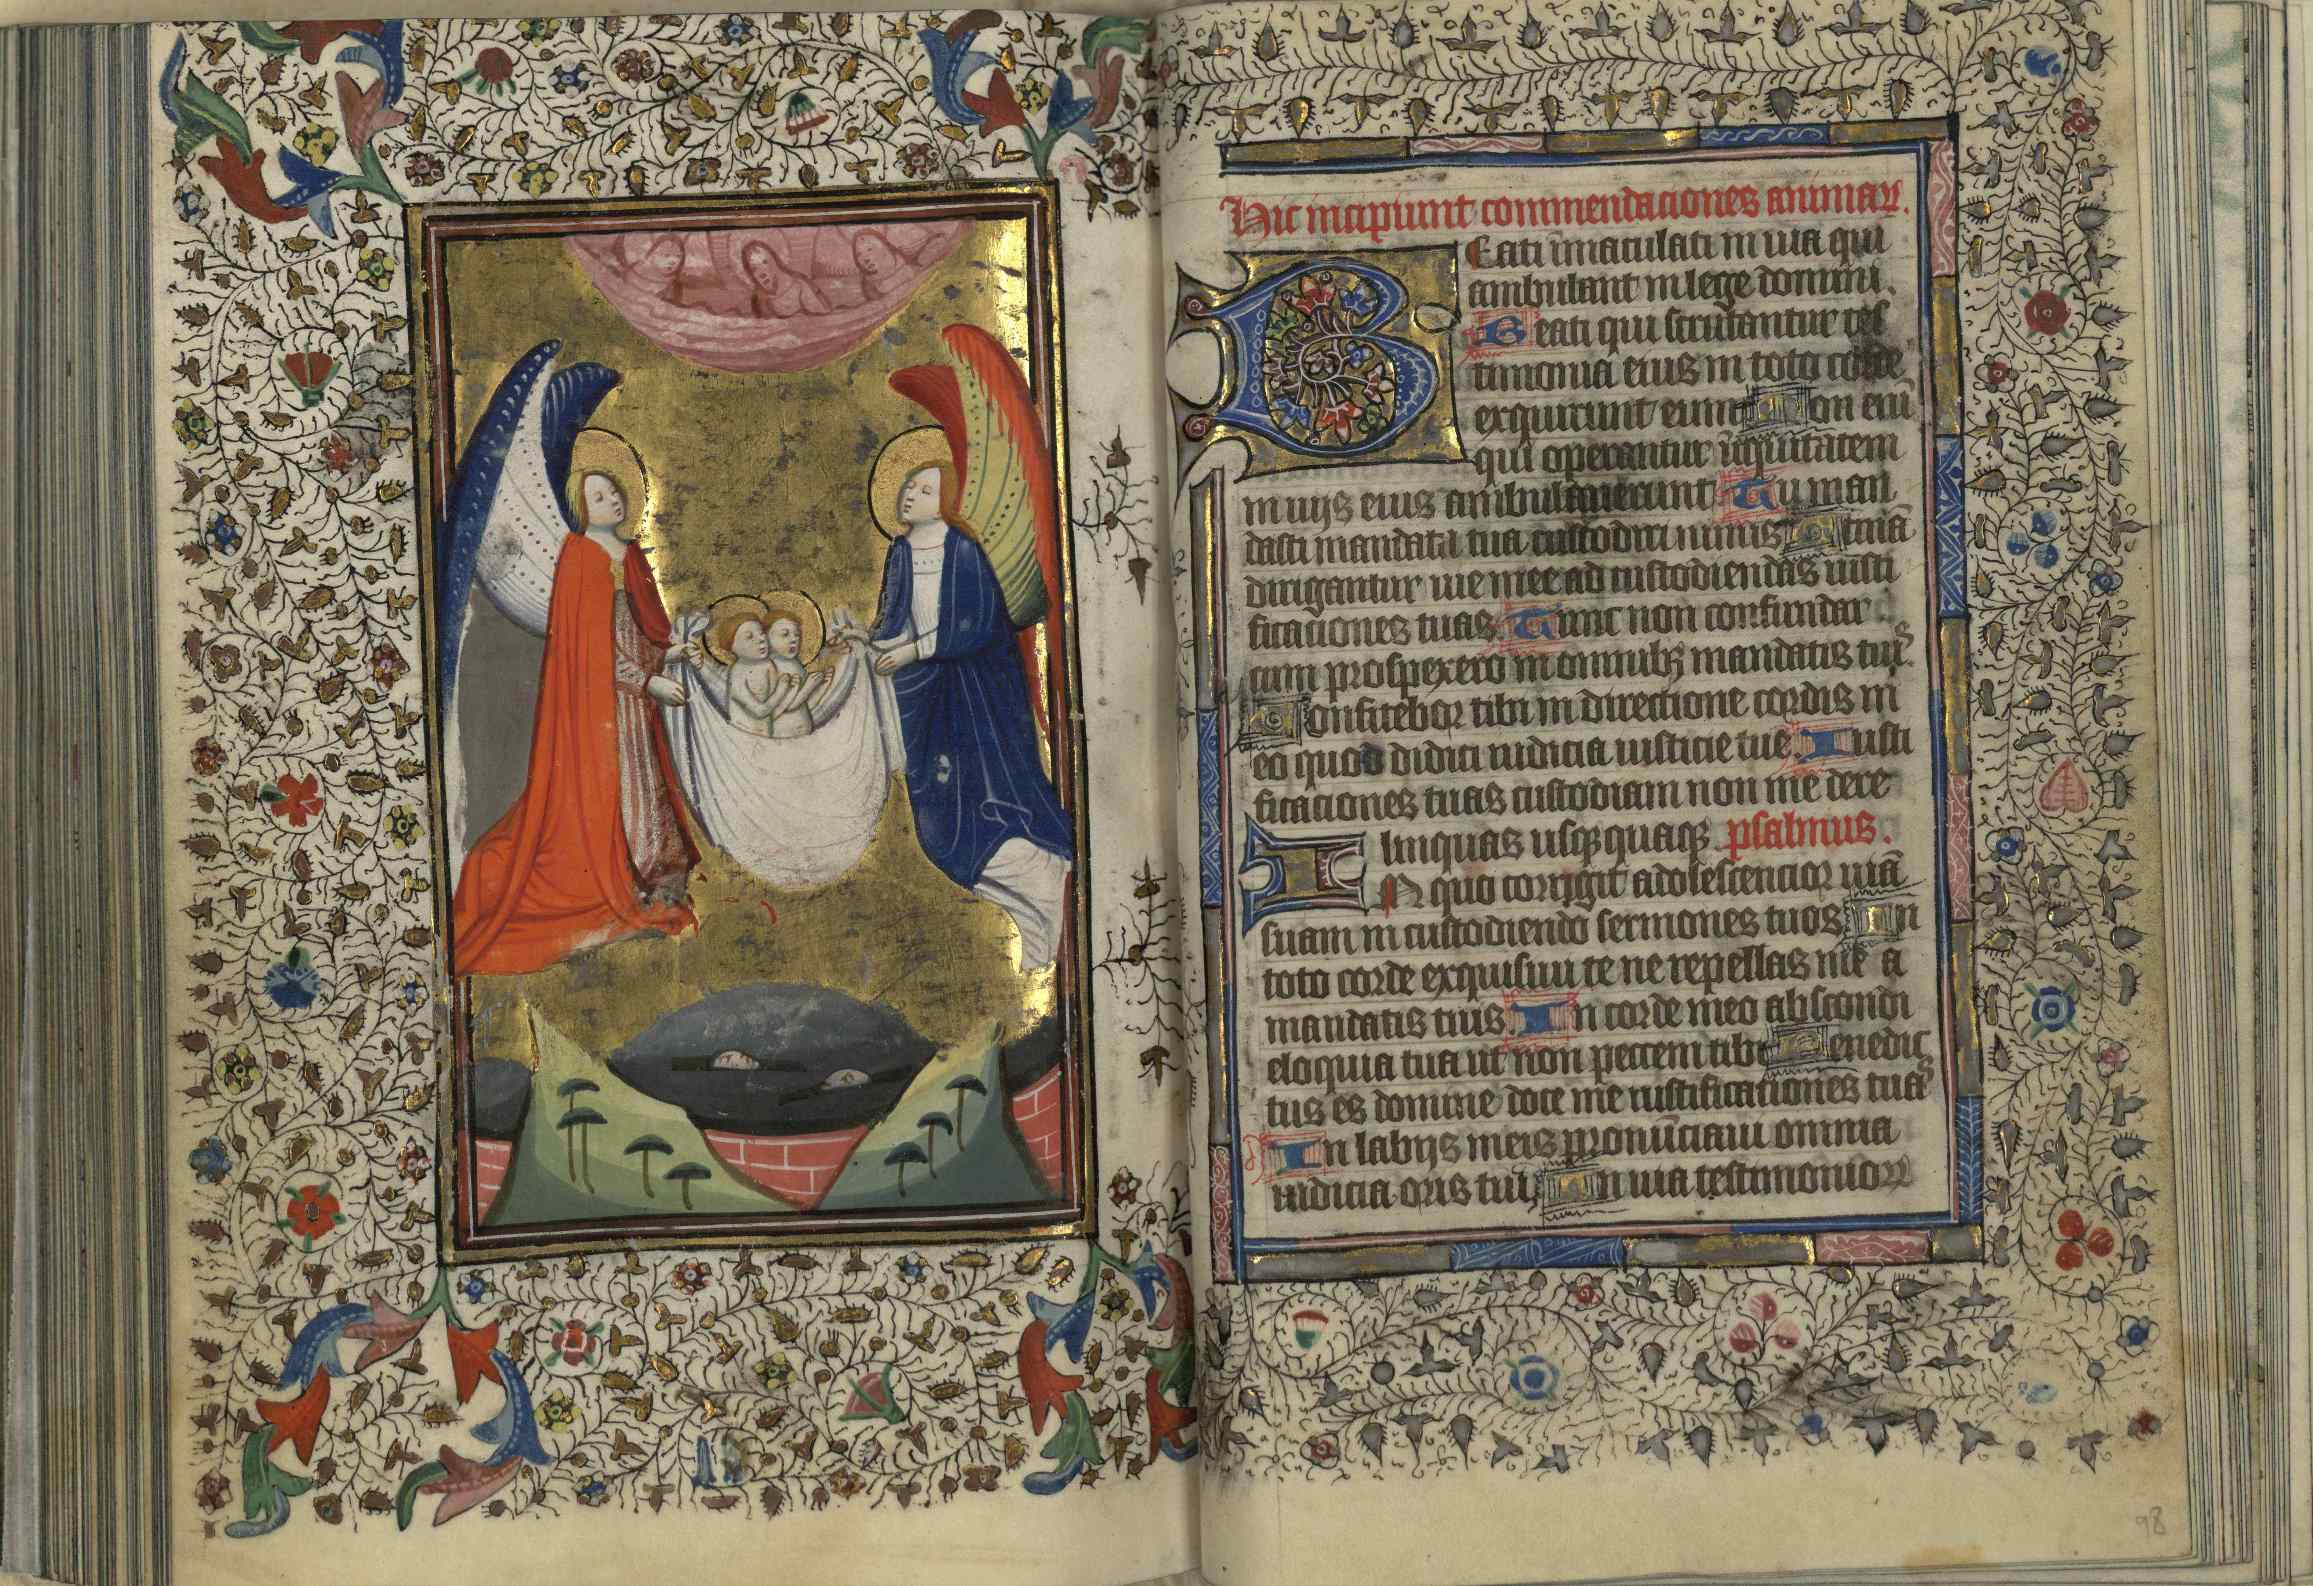 Hic incipiunt commendaciones animaꝝ.
Beati īmaculati in uia qui
ambulant in lege domini.
Beati qui scrutantur tes
timonia eius in toto corde
exquirunt eum Non eni̅
qui operantur iniquitatem
in uijs eius ambulauerunt Tu man
dasti mandata tua custodiri nimis Utinā
dirigantur uie mee ad custodiendas iusti
ficaciones tuas Tunc non confundar
cum prospexero in omnibꝫ mandatis tuis
Confitebor tibi in directione cordis in
eo quod didici iudicia iusticie tue Iusti
ficaciones tuas custodiam non me dere
linquas usqꝫquaqꝫ psalmus.
In quo corrigit adolescencior uiā
suam in custodiendo sermones tuos In
toto corde exquisiui te ne repellas me a
mandatis tuis In corde meo abscondi
eloquia tua ut non peccem tibi Benedic
tus es domine doce me iustificationes tuas
In labijs meis pronūciaui omnia
iudicia oris tui In uia testimonioꝝ
98